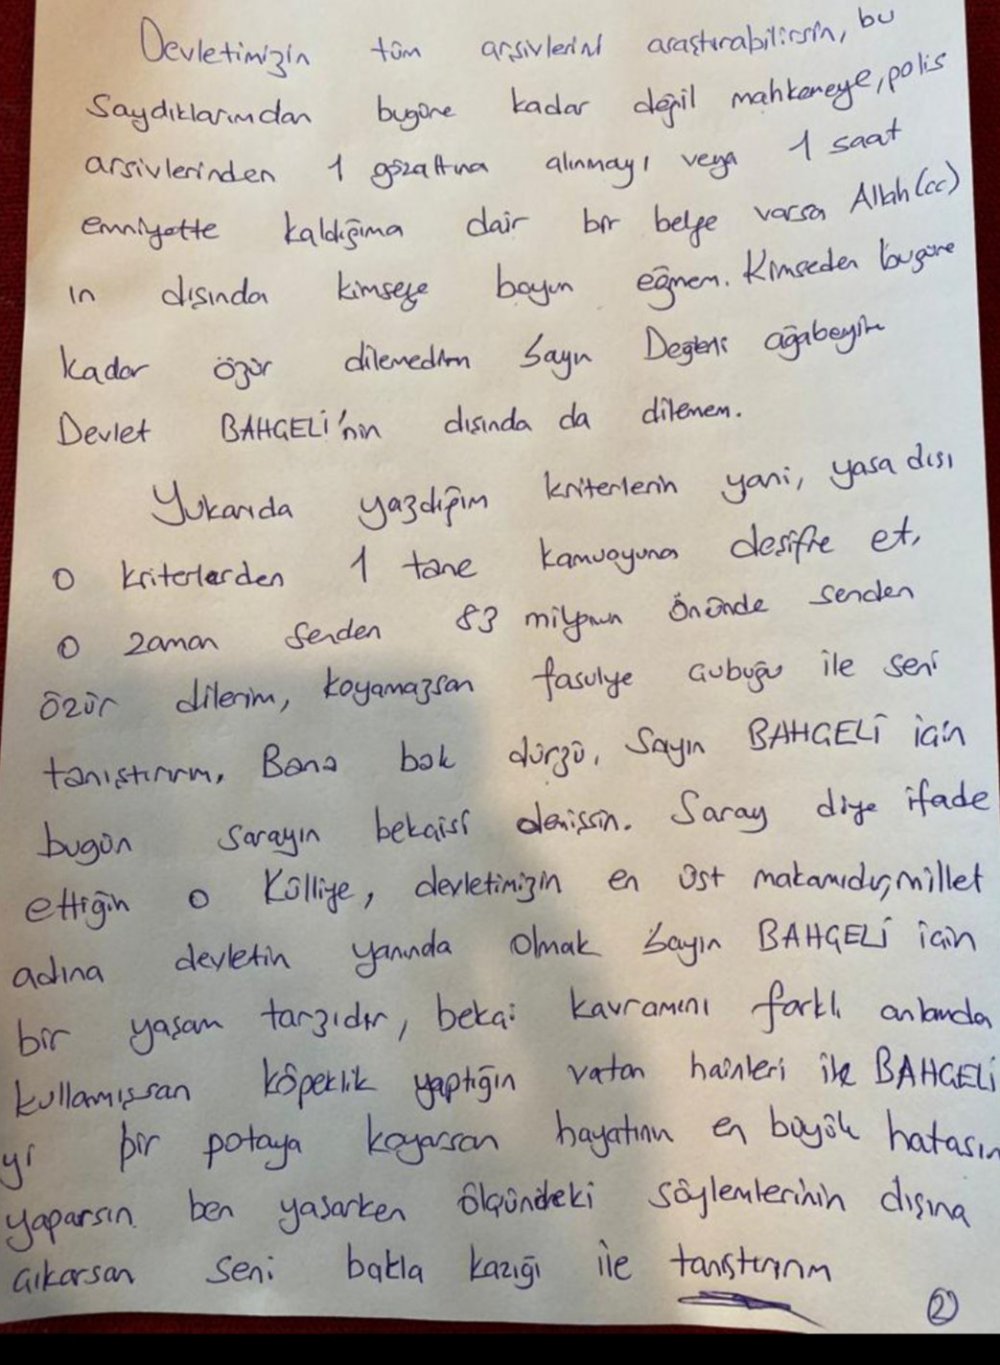 Devletimizin tüm arşivlerini araştırabilirsin, bu
Saydıklarımdan bugüne kadar değil mahkemeye, polis
arsivlerinden 1 gözaltına alınmayı veya 1 saat
emniyette kaldığıma dair bir belge varsa Allah (cc)
ın dışında kimseye boyun eğmem. Kimseden bugüne
kadar özür dilemedim Sayın Değerli ağabeyim
Devlet BAHÇELİ'nin dısında da dilemem.
Yukarıda yazdığım kriterlerin yani, yasa dışı
O kriterlerden 1 tane kamuoyuna desifre et,
O zaman senden 83 milyonun önünde senden
özür dilerim, koyamazsan fasulye çubuğu ile seni
tanıştırırım, Bana bak dürzü, Sayın BAHÇELİ için
bugün sarayın bekaisi demişsin. Saray diye ifade
ettiğin o Külliye, devletimizin en üst makamıdır, millet
adına devletin yanında olmak Sayın BAHÇELİ için
bir yaşam tarzıdır, bekai kavramını farklı anlamda
kullanmışsan köpeklik yaptığın vatan hainleri ile BAHÇELİ
yi bir potaya koyarsan hayatının en büyük hatasın
yaparsın. ben yaşarken ölçündeki söylemlerinin dışına
çıkarsan seni bakla kazığı ile tanıştırırım
2